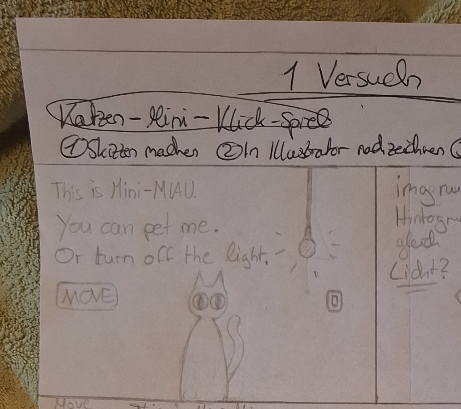 1 Versuch
Katzen-Mini-Klick-Spiel
① Skizzen machen ② In Illustrator nachzeichnen
This is Mini-MIAU.
You can pet me.
Or turn off the light.
MOVE
gleich
Licht?
Move